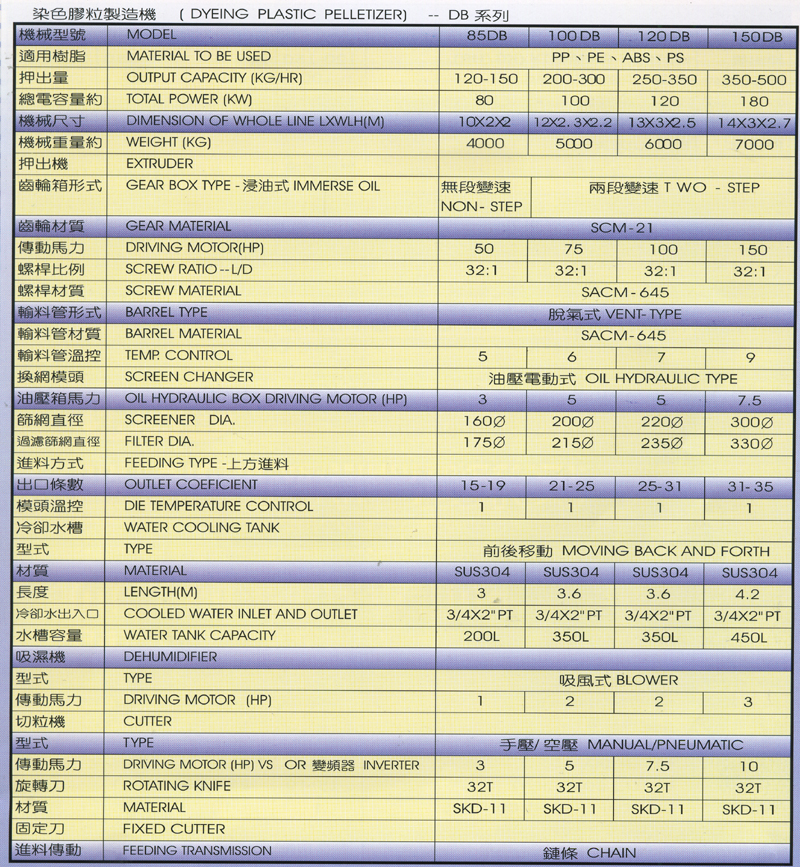 染色膠粒製造機 ( DYEING PLASTIC PELLETIZER) -- DB 系列
機械型號 MODEL 85DB 100DB 120DB 150DB
適用樹脂 MATERIAL TO BE USED PP、PE、ABS、PS
押出量 OUTPUT CAPACITY (KG/HR) 120-150 200-300 250-350 350-500
總電容量約 TOTAL POWER (KW) 80 100 120 180
機械尺寸 DIMENSION OF WHOLE LINE LXWLH(M) 10X2X2 12X2.3X2.2 13X3X2.5 14X3X2.7
機械重量約 WEIGHT (KG) 4000 5000 6000 7000
押出機 EXTRUDER
齒輪箱形式 GEAR BOX TYPE -浸油式 IMMERSE OIL 無段變速 兩段變速 T WO - STEP
NON- STEP
齒輪材質 GEAR MATERIAL SCM-21
傳動馬力 DRIVING MOTOR(HP) 50 75 100 150
螺桿比例 SCREW RATIO--L/D 32:1 32:1 32:1 32:1
螺桿材質 SCREW MATERIAL SACM-645
輸料管形式 BARREL TYPE 脫氣式 VENT-TYPE
輸料管材質 BARREL MATERIAL SACM-645
輸料管溫控 TEMP. CONTROL 5 6 7 9
換網模頭 SCREEN CHANGER 油壓電動式 OIL HYDRAULIC TYPE
油壓箱馬力 OIL HYDRAULIC BOX DRIVING MOTOR (HP) 3 5 5 7.5
篩網直徑 SCREENER DIA. 160Ø 200Ø 220Ø 300Ø
過濾篩網直徑 FILTER DIA. 175Ø 215Ø 235Ø 330Ø
進料方式 FEEDING TYPE -上方進料
出口條數 OUTLET COEFICIENT 15-19 21-25 25-31 31-35
模頭溫控 DIE TEMPERATURE CONTROL 1 1 1 1
冷卻水槽 WATER COOLING TANK
型式 TYPE 前後移動 MOVING BACK AND FORTH
材質 MATERIAL SUS304 SUS304 SUS304 SUS304
長度 LENGTH(M) 3 3.6 3.6 4.2
冷卻水出入口 COOLED WATER INLET AND OUTLET 3/4X2"PT 3/4X2"PT 3/4X2"PT 3/4X2"PT
水槽容量 WATER TANK CAPACITY 200L 350L 350L 450L
吸濕機 DEHUMIDIFIER
型式 TYPE 吸風式 BLOWER
傳動馬力 DRIVING MOTOR (HP) 1 2 2 3
切粒機 CUTTER
型式 TYPE 手壓/空壓 MANUAL/PNEUMATIC
傳動馬力 DRIVING MOTOR (HP) VS OR 變頻器 INVERTER 3 5 7.5 10
旋轉刀 ROTATING KNIFE 32T 32T 32T 32T
材質 MATERIAL SKD-11 SKD-11 SKD-11 SKD-11
固定刀 FIXED CUTTER
進料傳動 FEEDING TRANSMISSION 鏈條 CHAIN